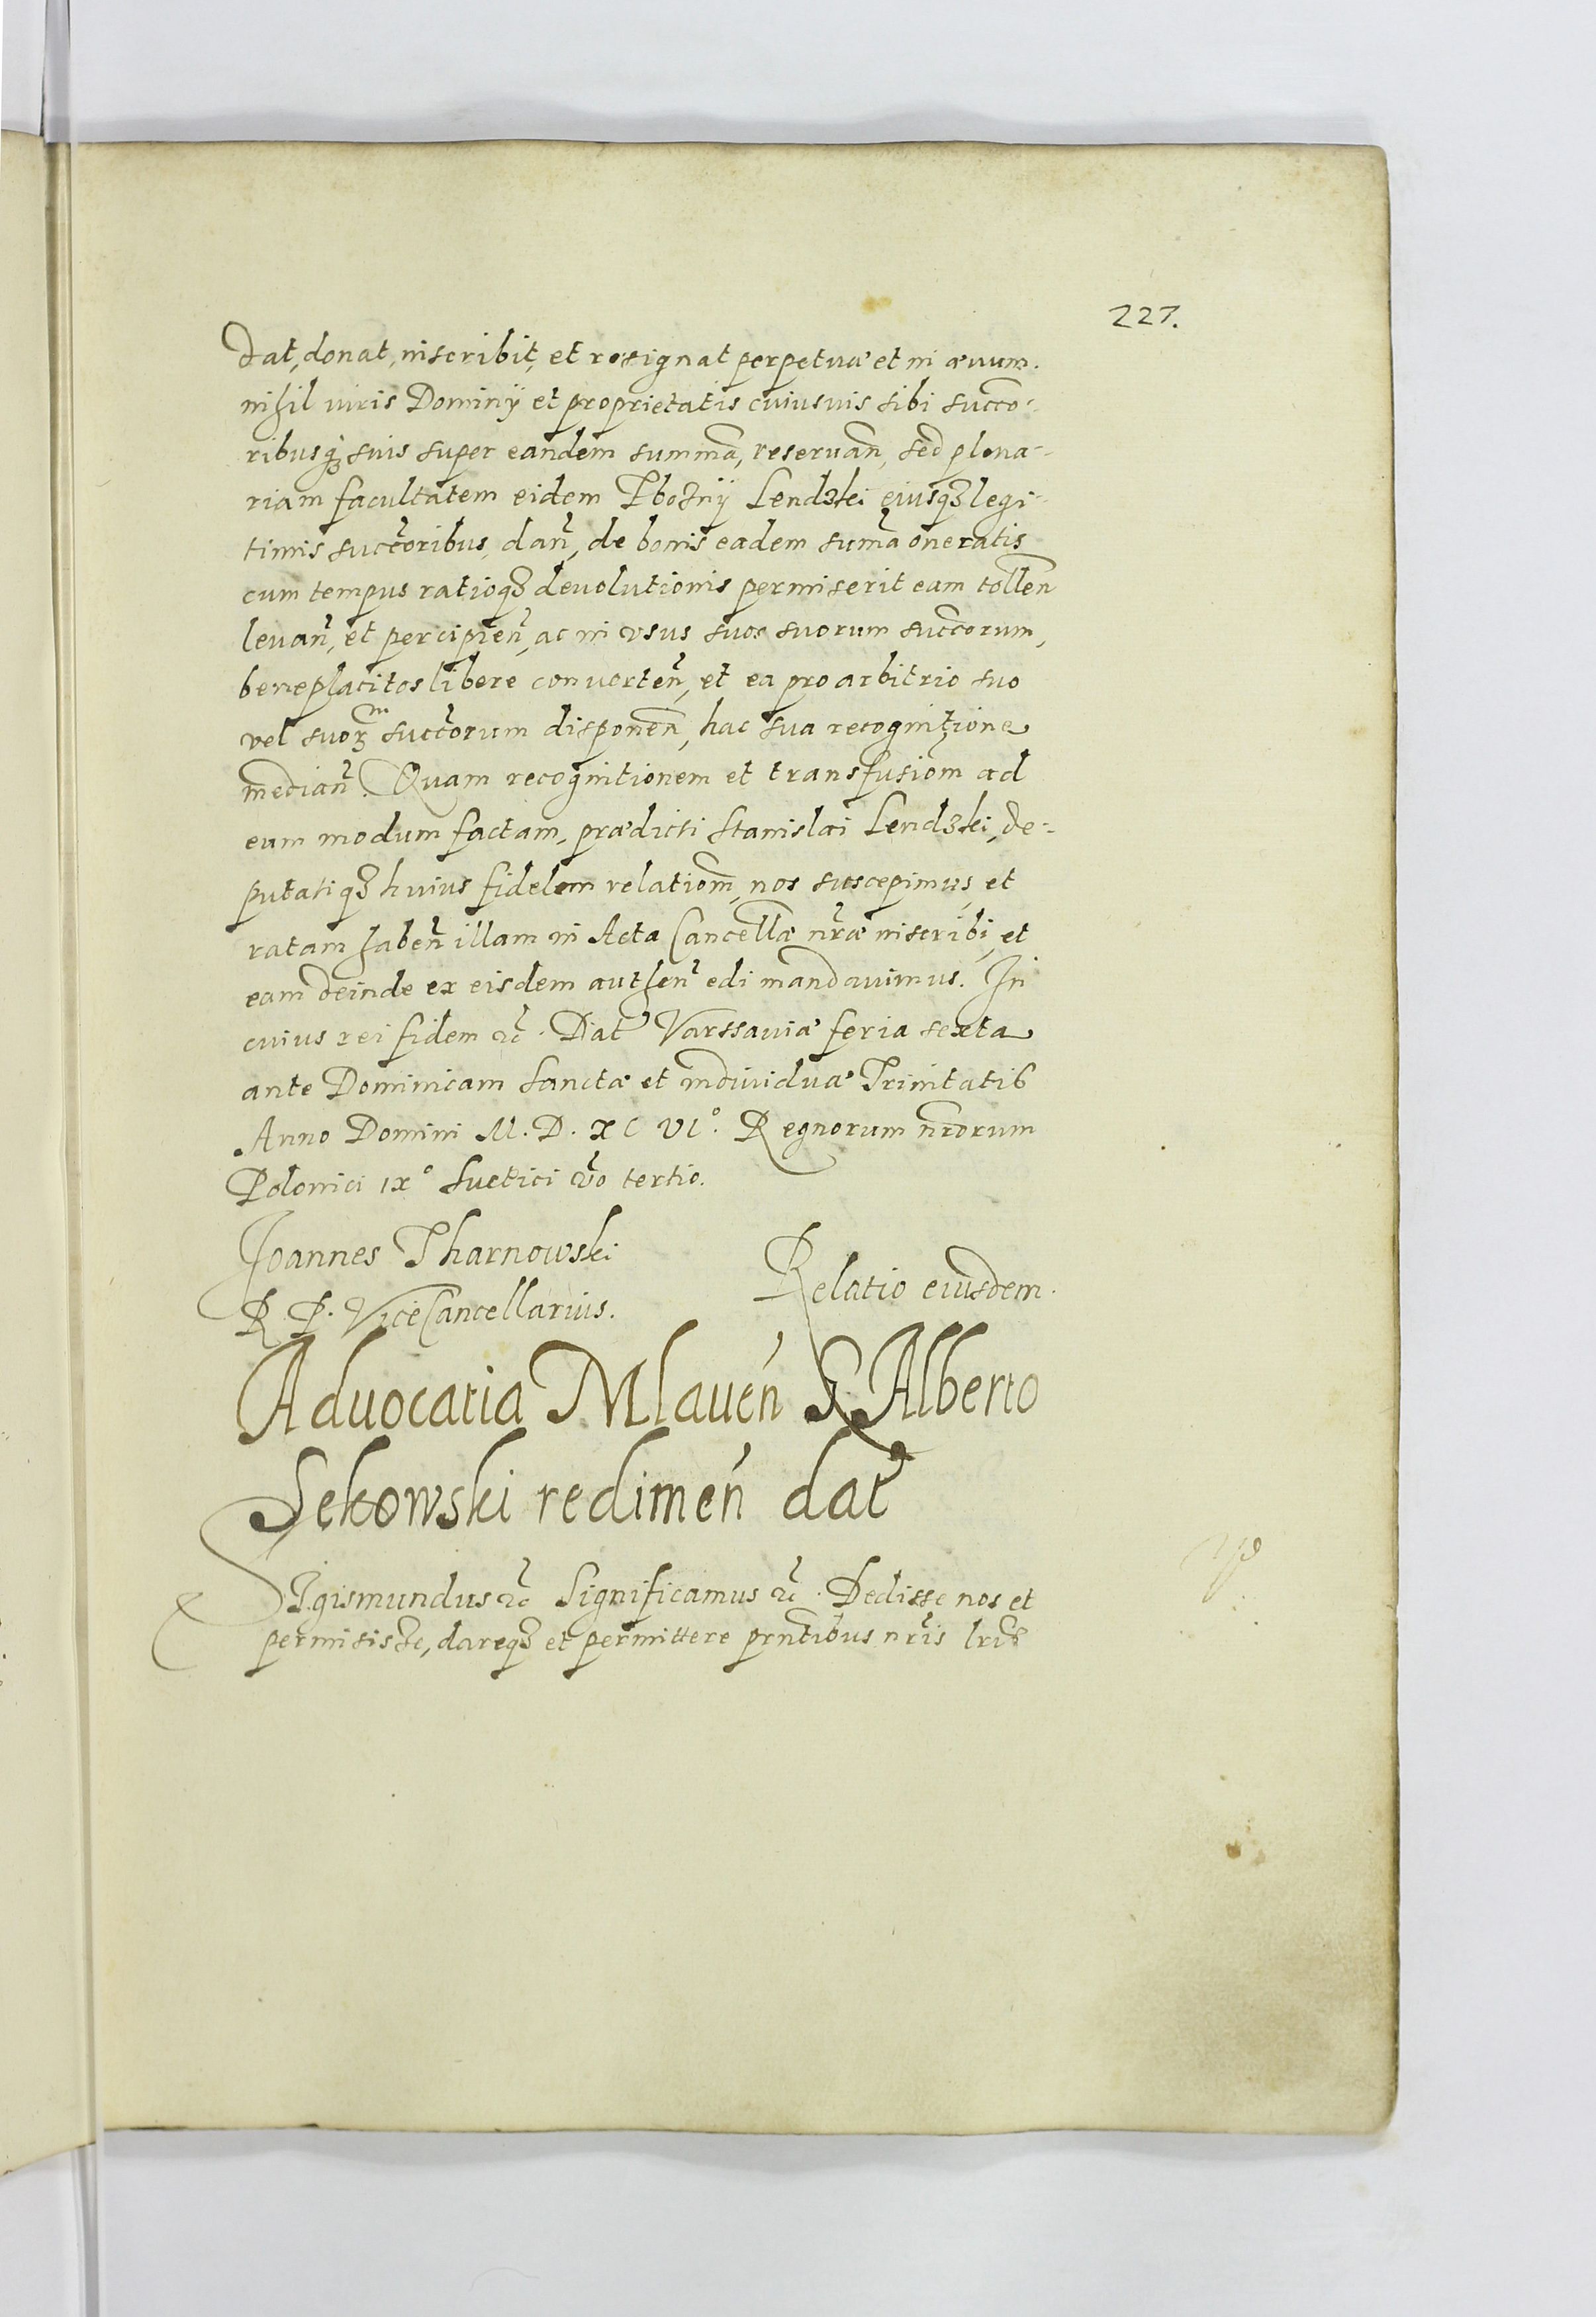 227.
Dat, donat, inscribit, et resignat perpetuæ et in ævum.
nihil iuris Dominÿ et proprietatis cuiusuis sibi succo-
ribusq3 suis super eandem summã, reseruañ, sed plena-
riam facultatem eidem Zboznÿ Lendzki eiusq3 legi-
timis succoribus, dañ, de bonis eadem sum̃a oneratis
cum tempus ratioq3 deuolutionis permiserit eam tolleñ
leuañ, et percipieñ, ac in vsus suos suorum succorum,
beneplacitos libere conuerteñ, et ea pro arbitrio suo
vel suorum succorum disponeñ, hac sua recognitione
mediañ. Quam recognitionem et transfusiom̃ ad
eum modum factam, prædicti Stanislai Lendzki, de-
putatiq3 huius fidelem relatiom̃, nos suscepimus, et
ratam habeñ illam in Acta Cancellæ nræ inscribi, et
eam deinde ex eisdem autheñ edi mandauimus. In
cuius rei fidem &c. Dat Varssauiæ feria sexta
ante Dominicam Sanctæ et indiuiduæ Trinitatis
Anno Domini M. D. XC VI°. Regnorum nrorum
Polonici IX° Suetici ṽo tertio.
Joannes Tharnowski
R. P. ViceCancellarius.
Relatio eiusdem.
Aduocatia Mlaueń G. Alberto
Sękowski redimeń dat
Sigismundus &c Significamus &c. Dedisse nos et
permisisse, dareq3 et permittere prntibus nris lris